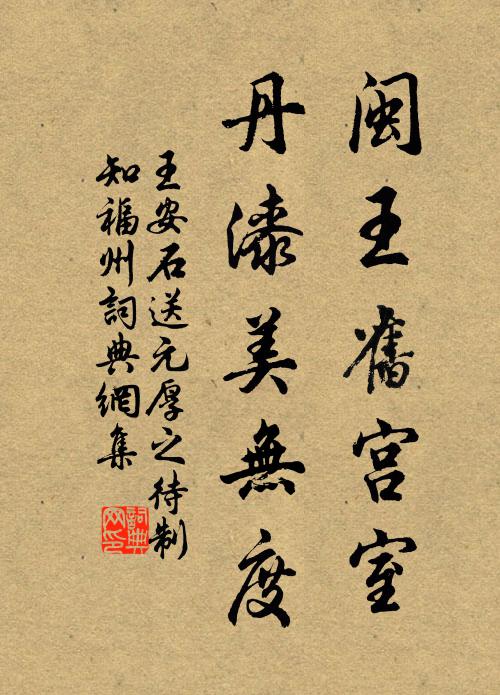 闽王旧宫室
丹漆美無度
王安石送元厚之待制
知福州詞典網集
詞典網印